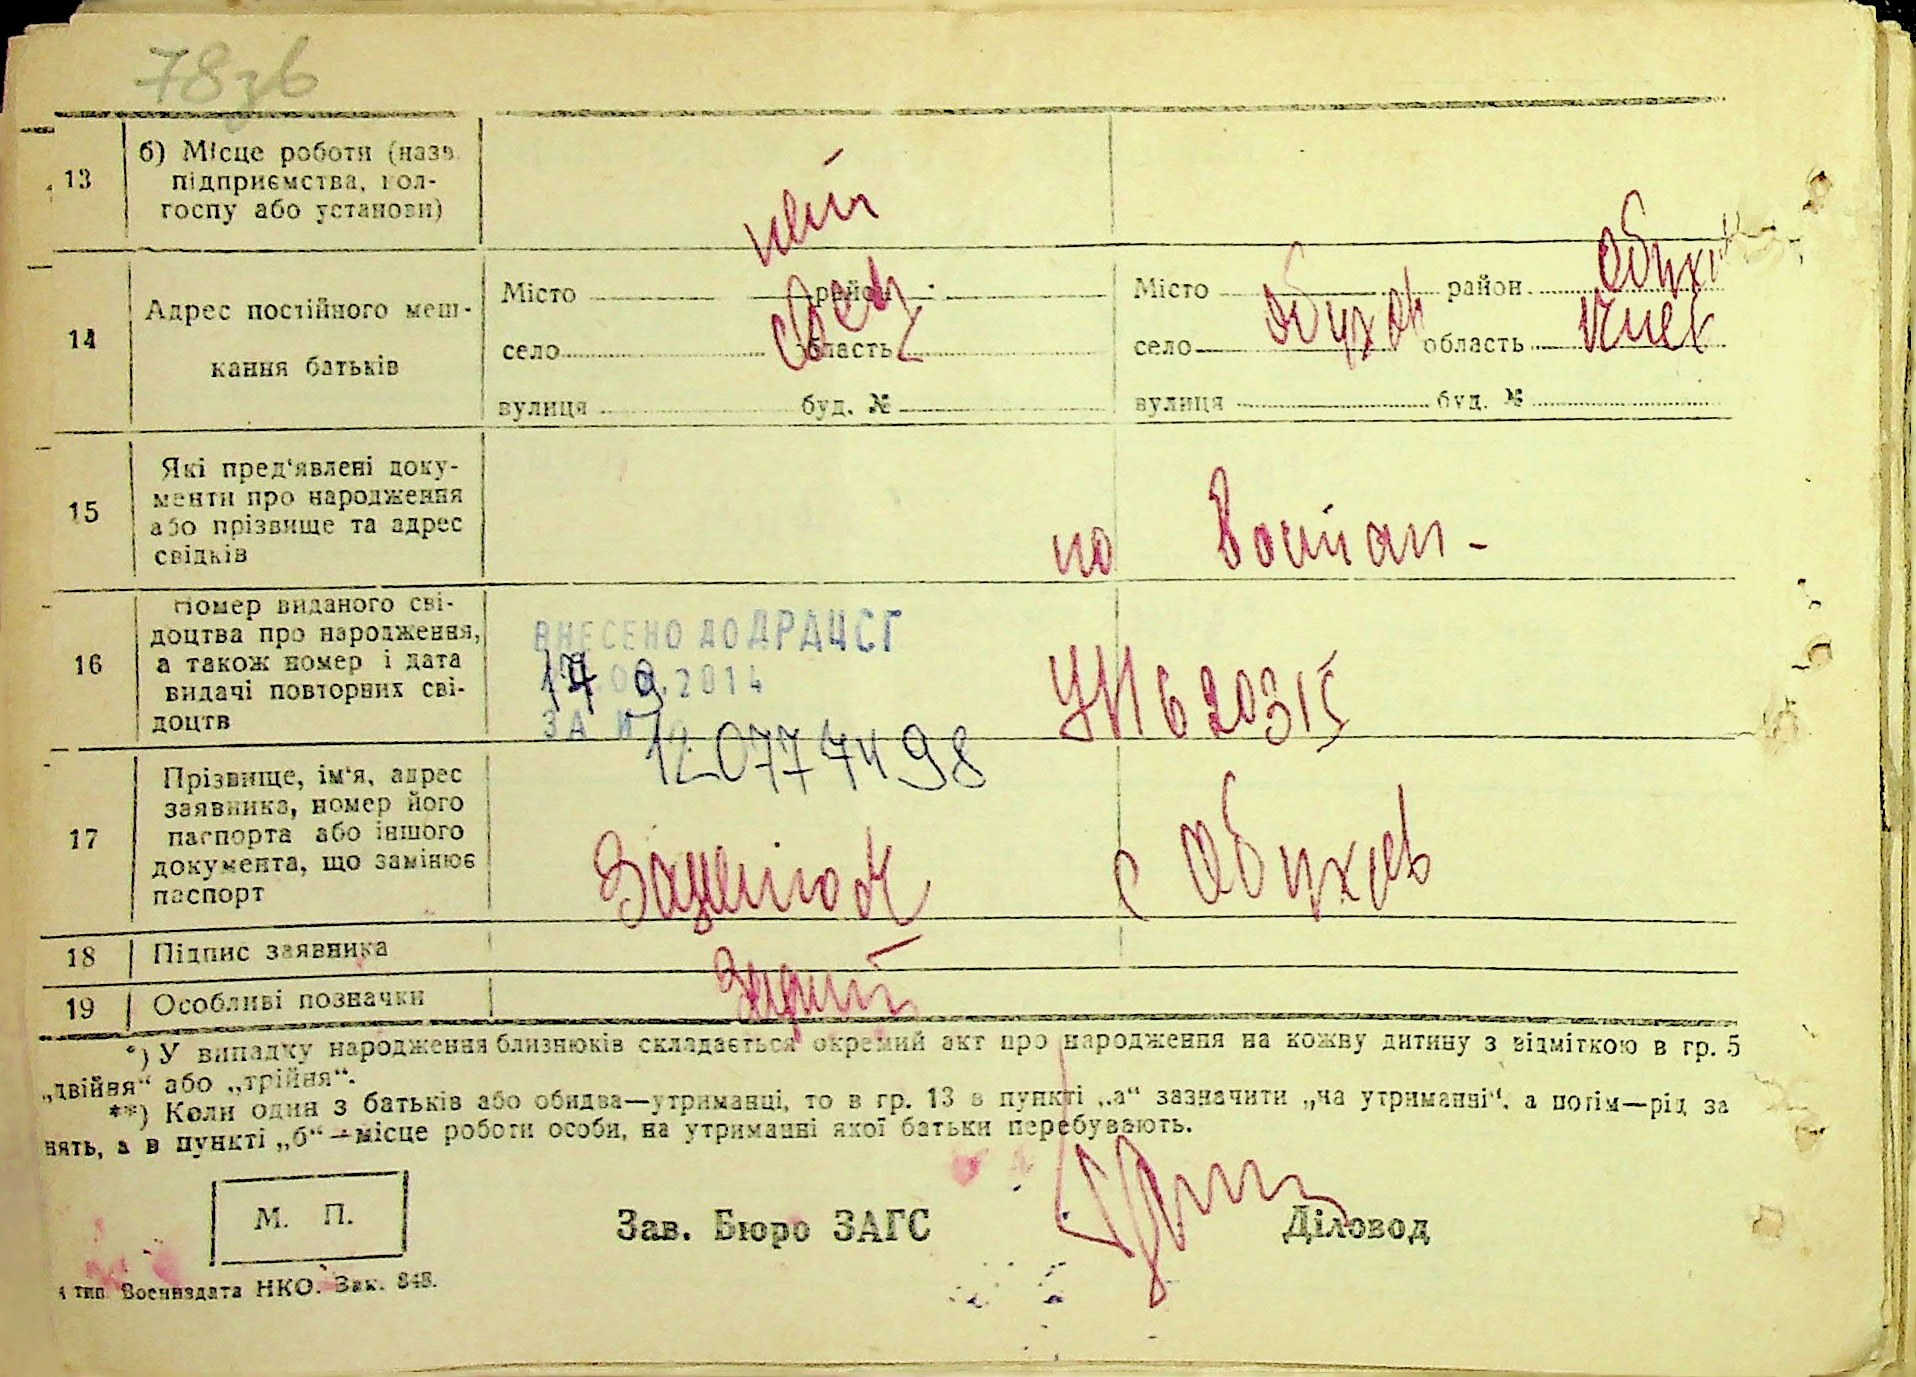 78зв
13
б) Місце роботи (назв.
підприємства, кол-
госпу або установи)
14
Адрес постійного меш-
кання батьків
Місто район
село область
вулиця буд. №
Місто район Обухів
село Обухов область Киев
вулиця буд. №
15
Які пред'явлені доку-
менти про народження
або прізвище та адрес
свідків
по
16
Номер виданого сві-
доцтва про народження,
а також номер і дата
видачі повторних сві-
доцтв
ВНЕСЕНО ДО ДРАЦСГ
2014
ЗА №
12077498
620315
17
Прізвище, ім'я, адрес
заявника, номер його
паспорта або іншого
документа, що замінює
паспорт
с Обухов
18 Підпис заявника
19 Особливі позначки
*) У випадку народження близнюків складається окремий акт про народження на кожну дитину з відміткою в гр. 5
„двійня“ або „трійня“.
**) Коли один з батьків або обидва—утриманці, то в гр. 13 в пункті „а“ зазначити „на утриманні“, а потім—рід за
нять, а в пункті „б“—місце роботи особи, на утриманні якої батьки перебувають.
М. П.
Зав. Бюро ЗАГС
Діловод
тип. Воениздата НКО. Зак. 848.